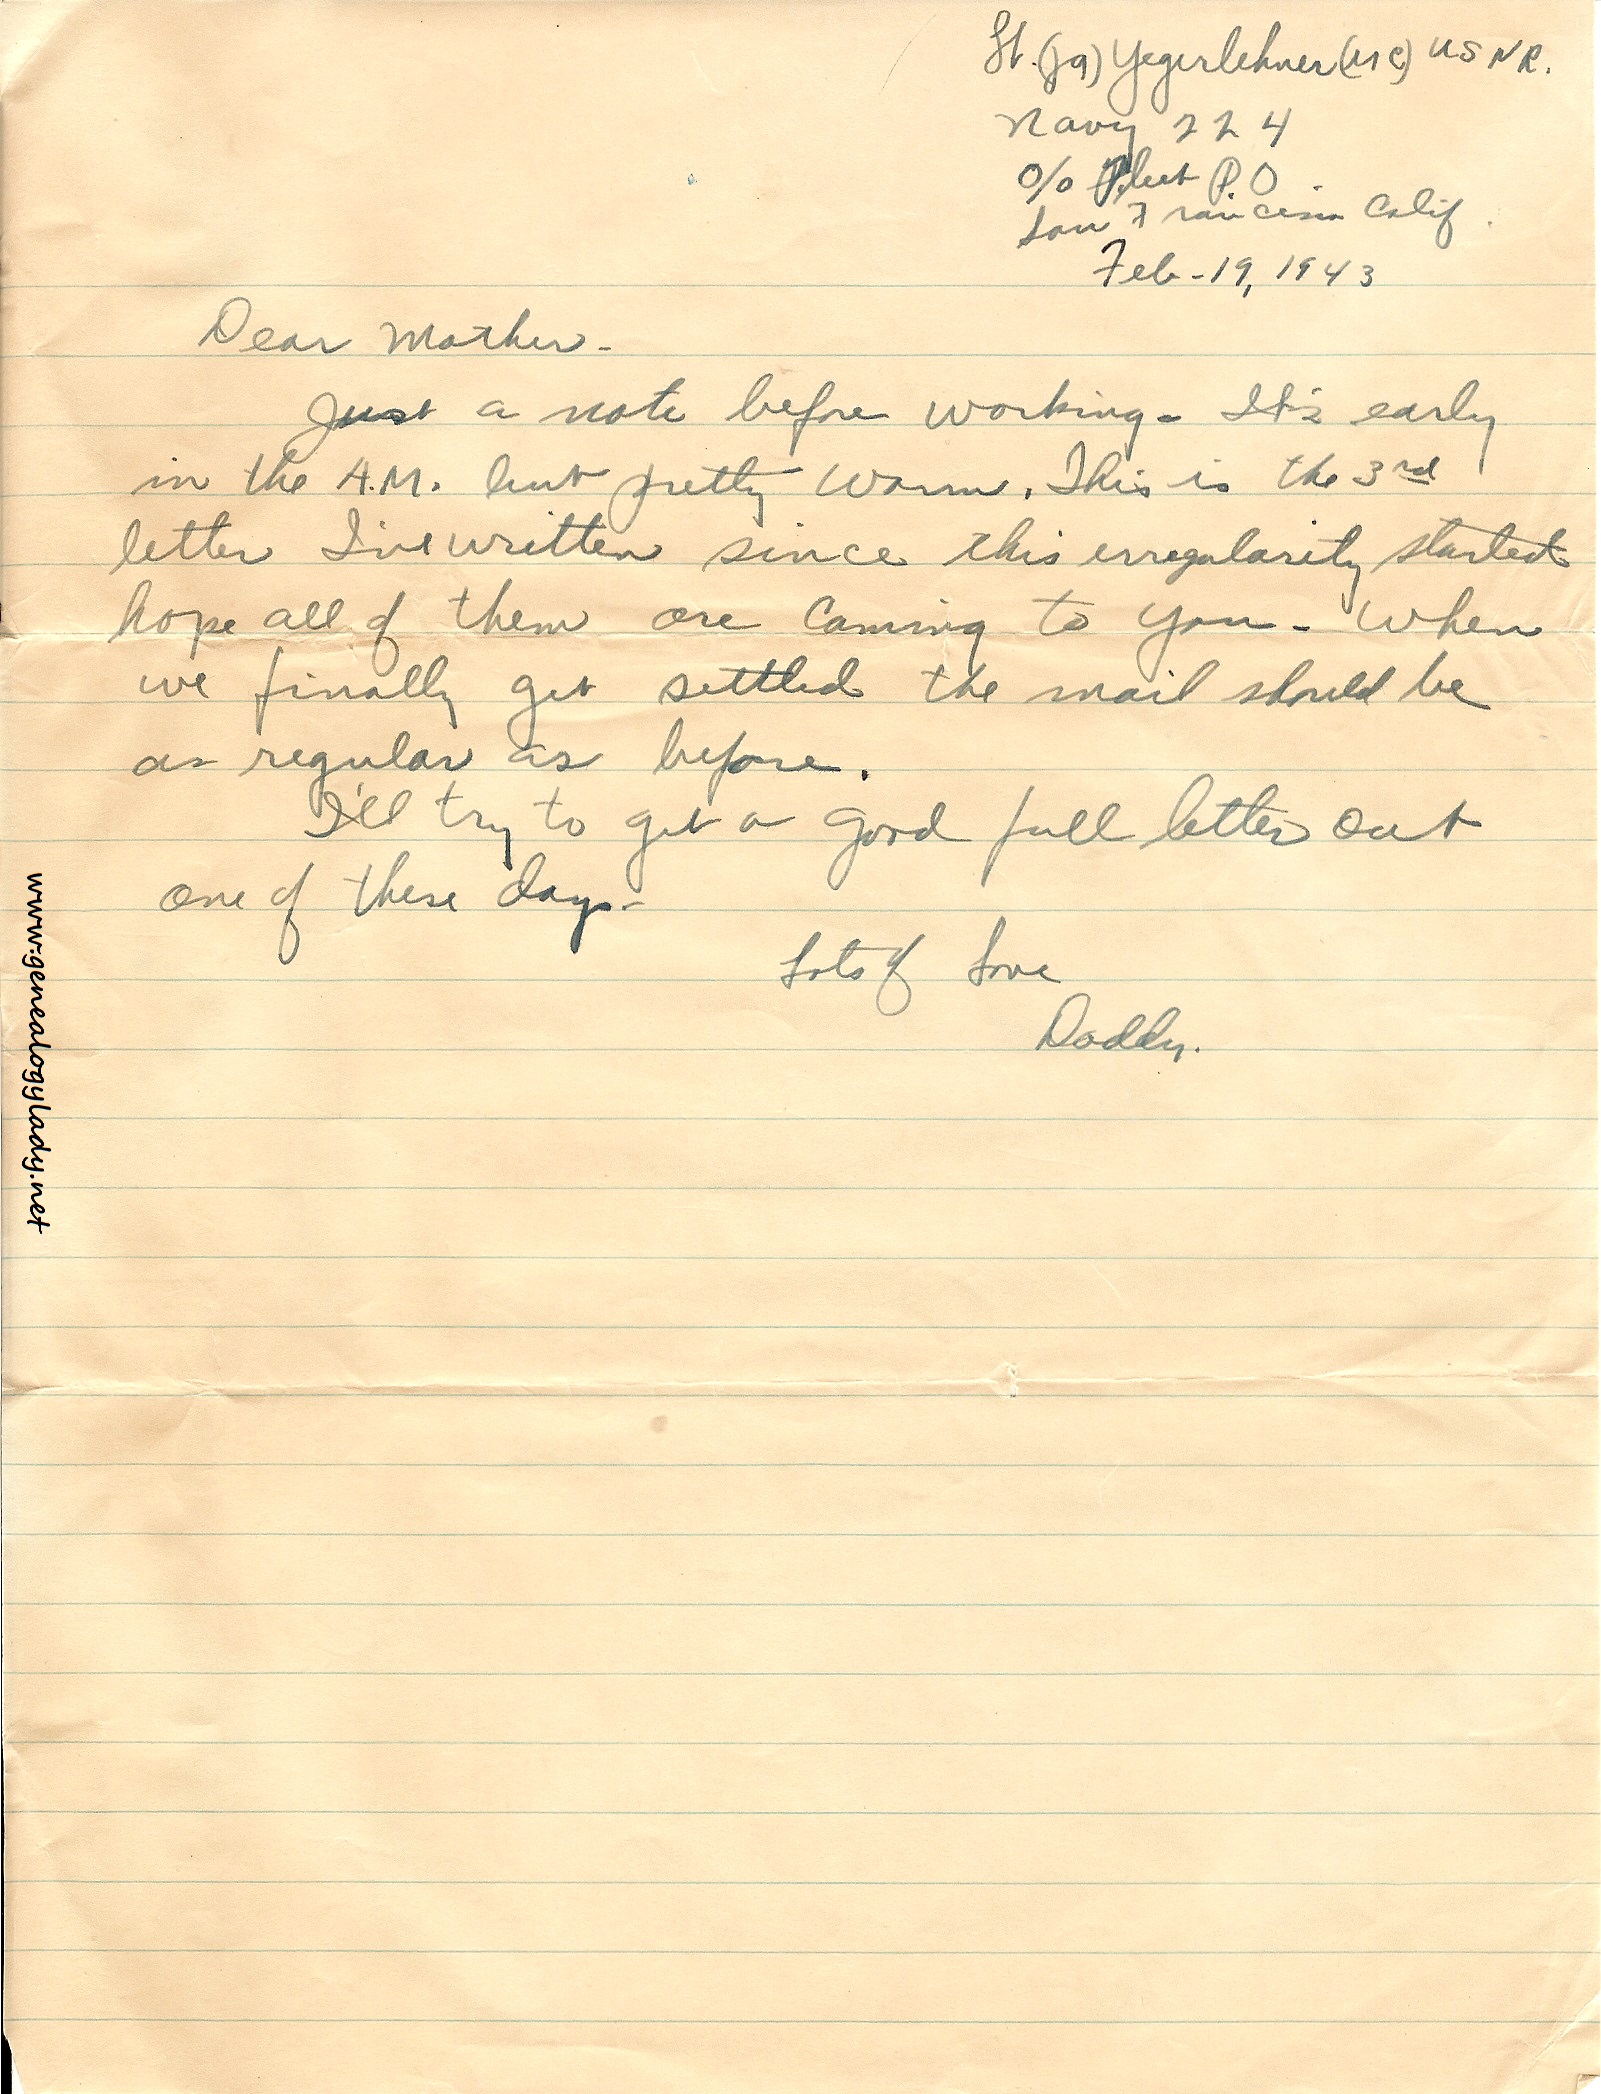 Lt. (jg) Yegerlehner (MC) USNR.
Navy 224
c/o Fleet P.O
San Francisco Calif.
Feb-19, 1943
Dear Mother-
Just a note before working- It's early
in the A.M. but pretty warm. This is the 3rd
letter I've written since this irregularity started
hope all of them are coming to you- When
we finally get settled the mail should be
as regular as before.
I'll try to get a good full letter out
one of these days-
Lots of Love
Daddy.
www.genealogylady.net